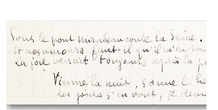 Sous le pont mirabeau coule la Seine.
Et nos amours faut il qu'il m'en sou
La joie venait toujours après la pe
Vienne la nuit, sonne l'he
les jours s'en vont, je deme